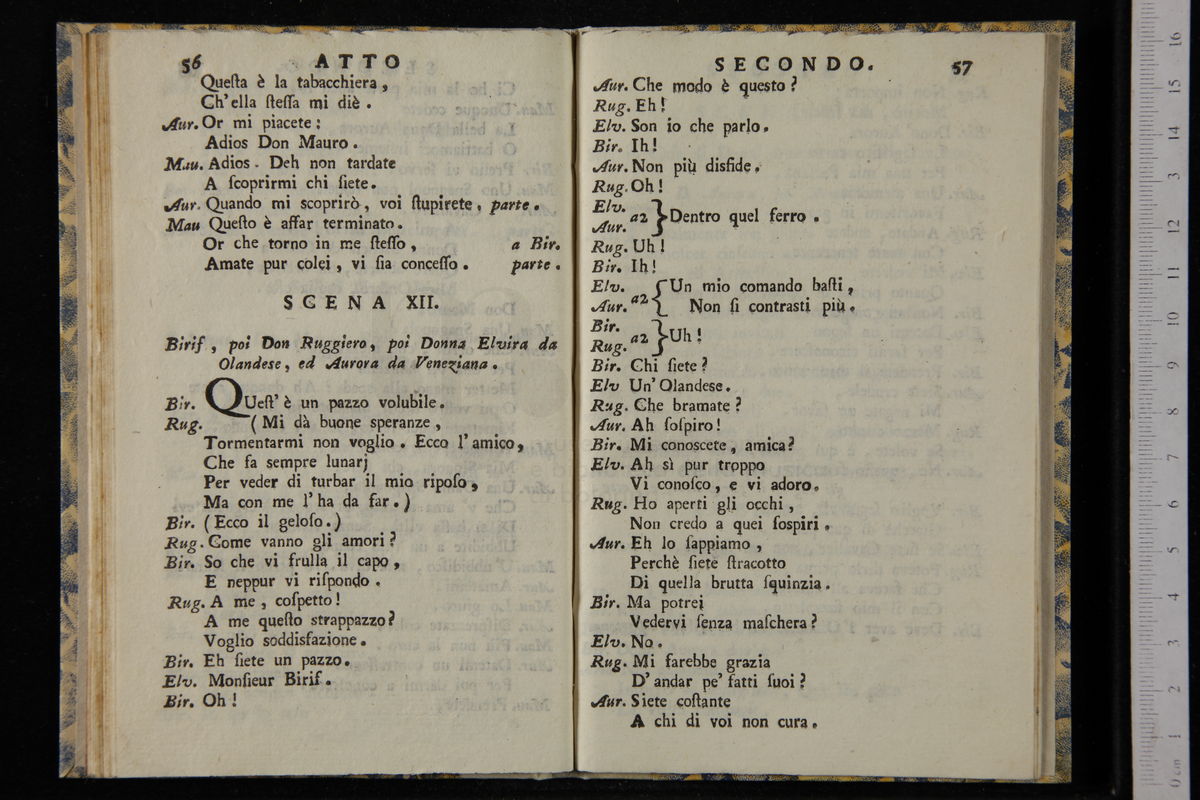 56 ATTO
Queſta è la tabacchiera,
Ch'ella ſteſſa mi diè.
Aur. Or mi piacete:
Adios Don Mauro.
Mau. Adios. Deh non tardate
A ſcoprirmi chi ſiete.
Aur. Quando mi scoprirò, voi ſtupirete, parte.
Mau Queſto è affar terminato.
Or che torno in me ſteſſo, a Bir.
Amate pur colei, vi ſia conceſſo. parte.
SCENA XII.
Birif, poi Don Ruggiero, poi Donna Elvira da
Olandese, ed Aurora da Veneziana.
Bir. QUeſt' è un pazzo volubile.
Rug. (Mi dà buone speranze,
Tormentarmi non voglio. Ecco l'amico,
Che fa sempre lunarj
Per veder di turbar il mio ripoſo,
Ma con me l'ha da far.)
Bir. (Ecco il geloſo.)
Rug. Come vanno gli amori?
Bir. So che vi frulla il capo,
E neppur vi riſpondo.
Rug. A me, coſpetto!
A me queſto strappazzo?
Voglio soddisfazione.
Bir. Eh ſiete un pazzo.
Elv. Monſieur Birif.
Bir. Oh!
SECONDO. 57
Aur. Che modo è questo?
Rug. Eh!
Elv. Son io che parlo.
Bir. Ih!
Aur. Non più disfide.
Rug. Oh!
Elv.
Aur. a2 }Dentro quel ferro.
Rug. Uh!
Bir. Ih!
Elv. {Un mio comando baſti,
Aur. a2 Non ſi contrasti più.
Bir.
Rug. a2 }Uh!
Bir. Chi ſiete?
Elv Un' Olandese.
Rug. Che bramate?
Aur. Ah ſoſpiro!
Bir. Mi conoscete, amica?
Elv. Ah sì pur troppo
Vi conoſco, e vi adoro.
Rug. Ho aperti gli occhi,
Non credo a quei ſospiri.
Aur. Eh lo ſappiamo,
Perchè ſiete ſtracotto
Di quella brutta ſquinzia.
Bir. Ma potrei
Vedervi ſenza maſchera?
Elv. No.
Rug. Mi farebbe grazia
D'andar pe' fatti ſuoi?
Aur. Siete coſtante
A chi di voi non cura.